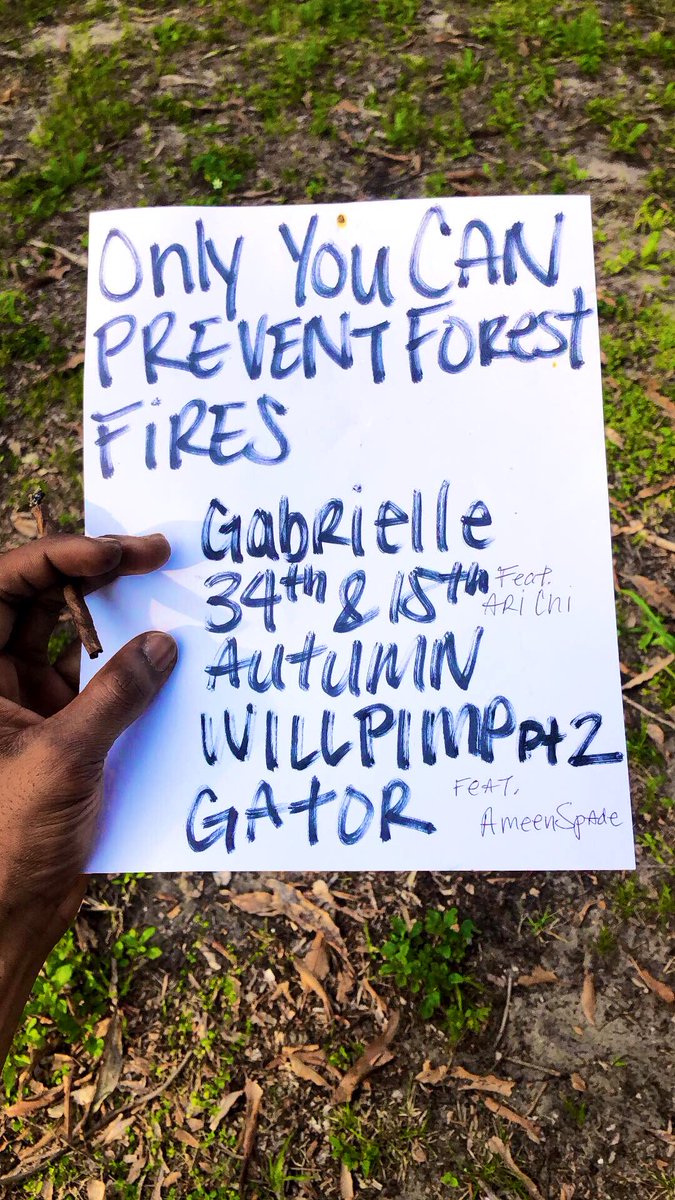 Only You CAN
PREVENT FOREST
FiRES
Gabrielle
34th & 15th Feat. ARi Chi
AUtUMN
WILLPIMP pt 2
GAtOR FEAT. AmeenSpAde